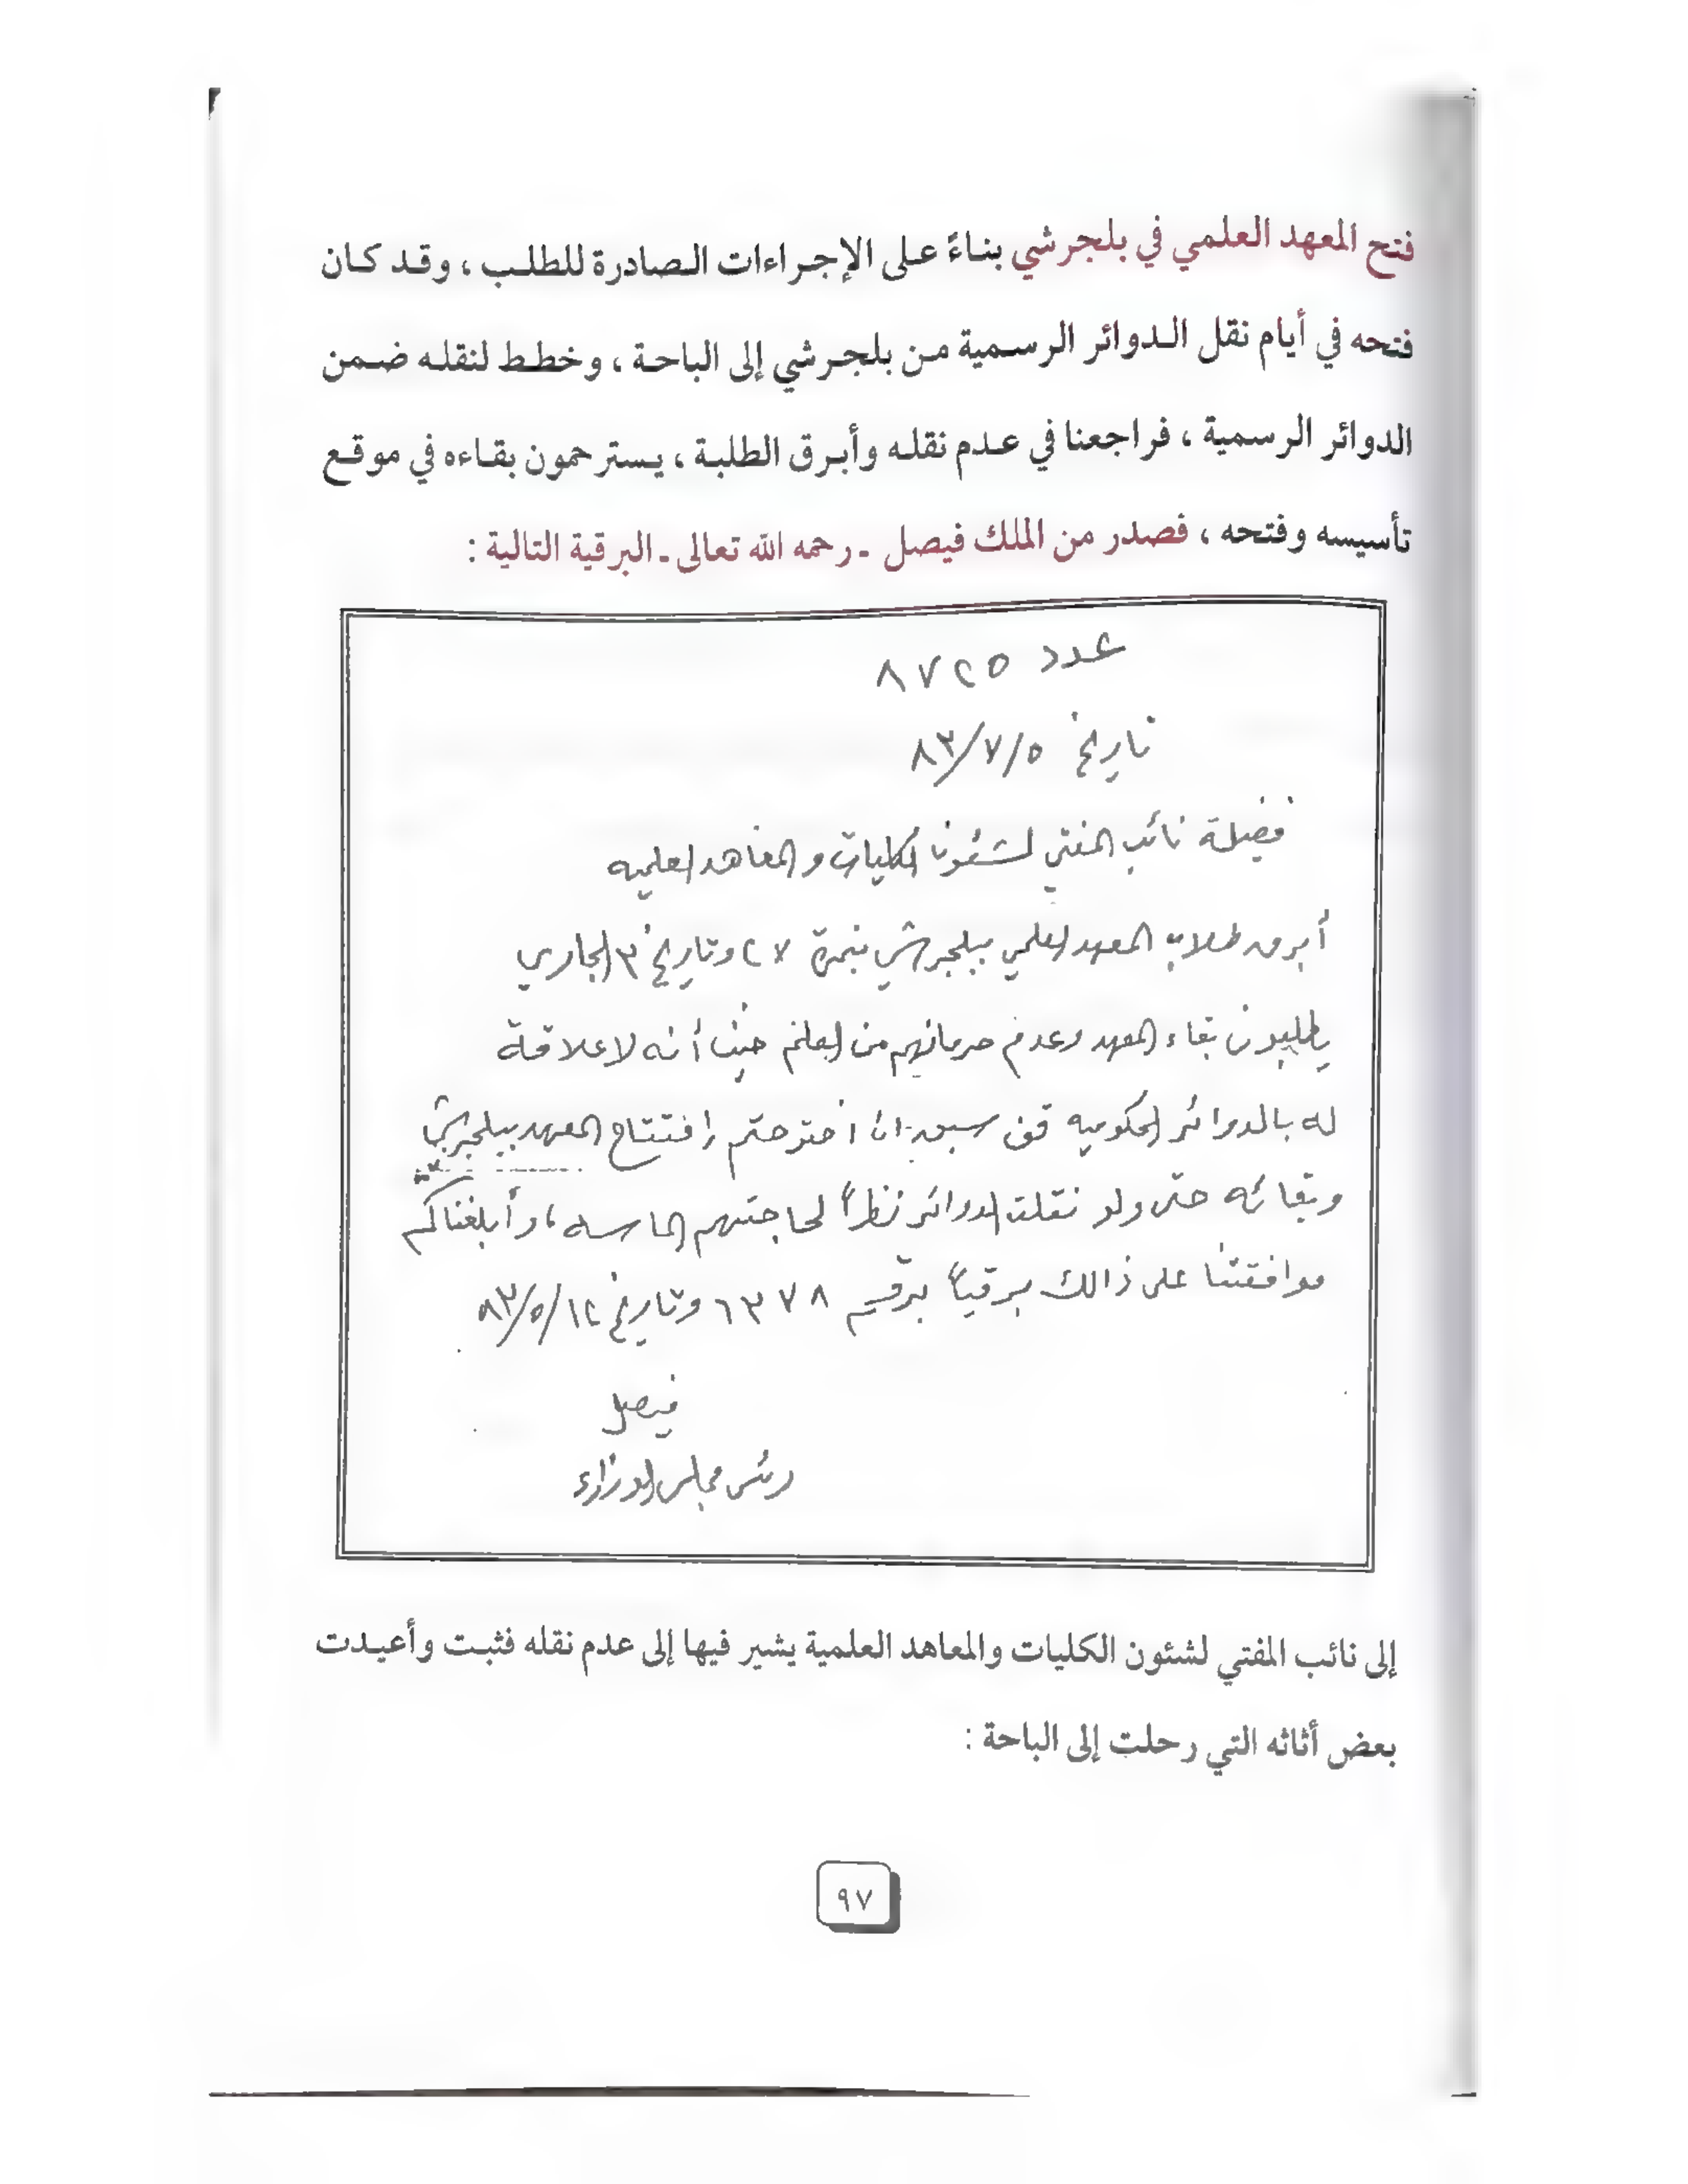 فتح المعهد العلمي في بلجرشي بناءً على الإجراءات الصادرة للطلب ، وقد كان
فتحه في أيام نقل الدوائر الرسمية من بلجرشي إلى الباحة ، وخطط لنقله ضمن
الدوائر الرسمية ، فراجعنا في عدم نقله وأبرق الطلبة ، يسترحمون بقاءه في موقع
تأسيسه وفتحه ، فصدر من الملك فيصل ـ رحمه الله تعالى ـ البرقية التالية :
عدد ٨٧٢٥
تاريخ ٨٣/٧/٥
فضيلة نائب المفتي لشئون الكليات والمعاهد العلميه
أبرق طلاب المعهد العلمي ببلجرشي بنمرة ٢٧ وتاريخ ٣ الجاري
يطلبون بقاء المعهد وعدم حرمانهم من العلم حيث أنه لا علاقة
له بالدوائر الحكوميه سبق ان اقترحتم افتتاح المعهد ببلجرشي
وبقائه حتى ولو نقلت الدوائر نظراً لحاجتهم الماسه ، وأبلغناكم
موافقتنا على ذالك برقياً برقم ٦٣٧٨ وتاريخ ٨٣/٥/١٢
فيصل
رئس مجلس الوزراء
إلى نائب المفتي لشئون الكليات والمعاهد العلمية يشير فيها إلى عدم نقله فثبت وأعيدت
بعض أثاثه التي رحلت إلى الباحة :
٩٧